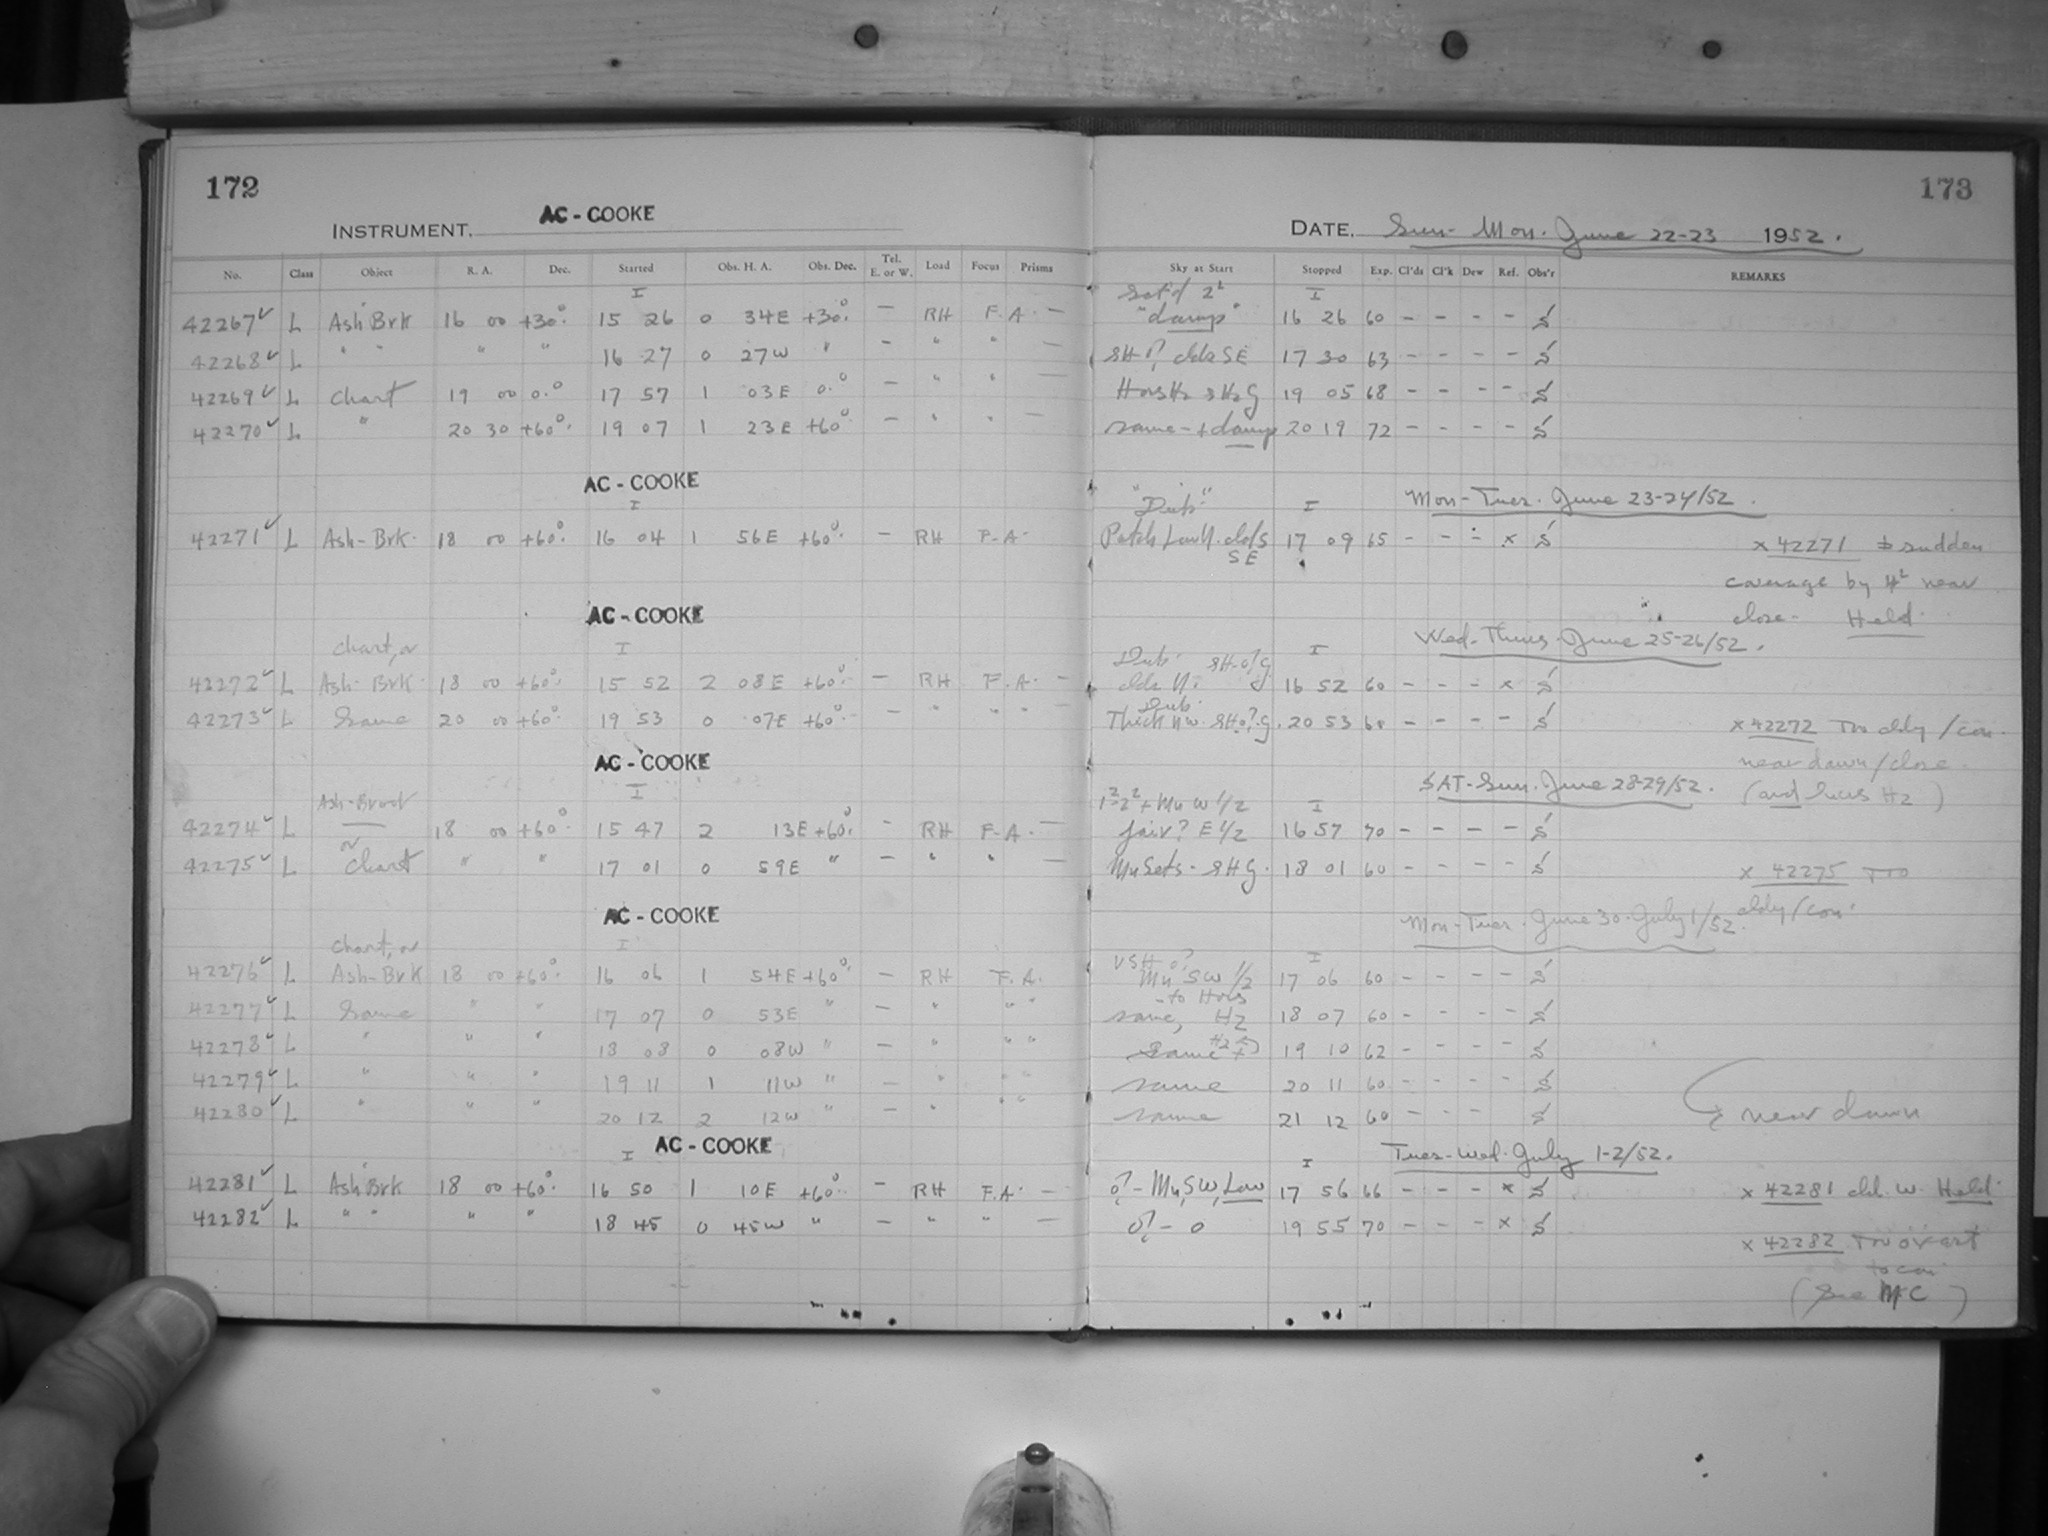 172
AC - COOKE
INSTRUMENT.
No. Class Object R. A. Dec. Started Obs. H. A. Obs. Dec. Tel. E. or W. Load Focus Prisms
I
42267 ✓ L Ash Brk 16 00 +30° 15 26 0 34E +30° — RH F.A. —
42268 ✓ L " " " " 16 27 0 27W " — " " —
42269 ✓ L Chart 19 00 0° 17 57 1 03E 0° — " " —
42270 ✓ L " 20 30 +60° 19 07 1 23E +60° — " " —
AC - COOKE
I
42271 ✓ L Ash-Brk. 18 00 +60° 16 04 1 56E +60° — RH F-A.
AC - COOKE
Chart, or I
42272 ✓ L Ash-Brk. 18 00 +60° 15 52 2 08E +60° — RH F.A. —
42273 ✓ L Same 20 00 +60° 19 53 0 07E +60° — " " " —
AC - COOKE
Ash-Brook I
42274 ✓ L or 18 00 +60° 15 47 2 13E +60° — RH F-A. —
42275 ✓ L Chart " " 17 01 0 59E " — " " —
AC - COOKE
Chart, or I
42276 ✓ L Ash-Brk 18 00 +60° 16 06 1 54E +60° — RH F.A.
42277 ✓ L Same " " 17 07 0 53E " — " " "
42278 ✓ L " " " 18 08 0 08W " — " " "
42279 ✓ L " " " 19 11 1 11W " — " " "
42280 ✓ L " " " 20 12 2 12W " — " " "
AC - COOKE
I
42281 ✓ L Ash Brk 18 00 +60° 16 50 1 10E +60° — RH F.A. —
42282 ✓ L " " " " 18 45 0 45W " — " " —
173
DATE. Sun- Mon. June 22-23 1952.
Sky at Start Stopped Exp. Cl'ds Cl'k Dew Ref. Obs'r REMARKS
I
"damp" 16 26 60 - - - -
SH o? clds SE 17 30 63 - - - -
19 05 68 - - - -
same - + damp 20 19 72 - - - -
"Dub" I Mon-Tues. June 23-24/52.
17 09 65 - - - x
SE
x 42271 sudden
coverage by near
close. Held.
Wed-Thurs. June 25-26/52.
Dub. SH-o?g I
clds N. 16 52 60 - - - x
Dub.
Thick NW. SH o?.g. 20 53 60 - - - -
x 42272 Tno cldy / con.
near dawn/close.
(and Hz)
SAT-Sun. June 28-29/52.
+ Mn W 1/2 I
fair? E 1/2 16 57 70 - - - -
Mn Sets - SHg. 18 01 60 - - - -
x 42275 Tno
cldy/con.
Mon-Tues. June 30-July 1/52.
VSH o? I
Mn SW 1/2 17 06 60 - - - -
- to Hors
same, Hz 18 07 60 - - - -
Same 19 10 62 - - - -
same 20 11 60 - - - -
same 21 12 60 - - -
near dawn
Tues-Wed. July 1-2/52.
I
o? - Mn, SW, Low 17 56 66 - - - x
x 42281 cld. W. Held.
o? - o 19 55 70 - - - x
x 42282 Tno ovcast
to con.
(See MC)